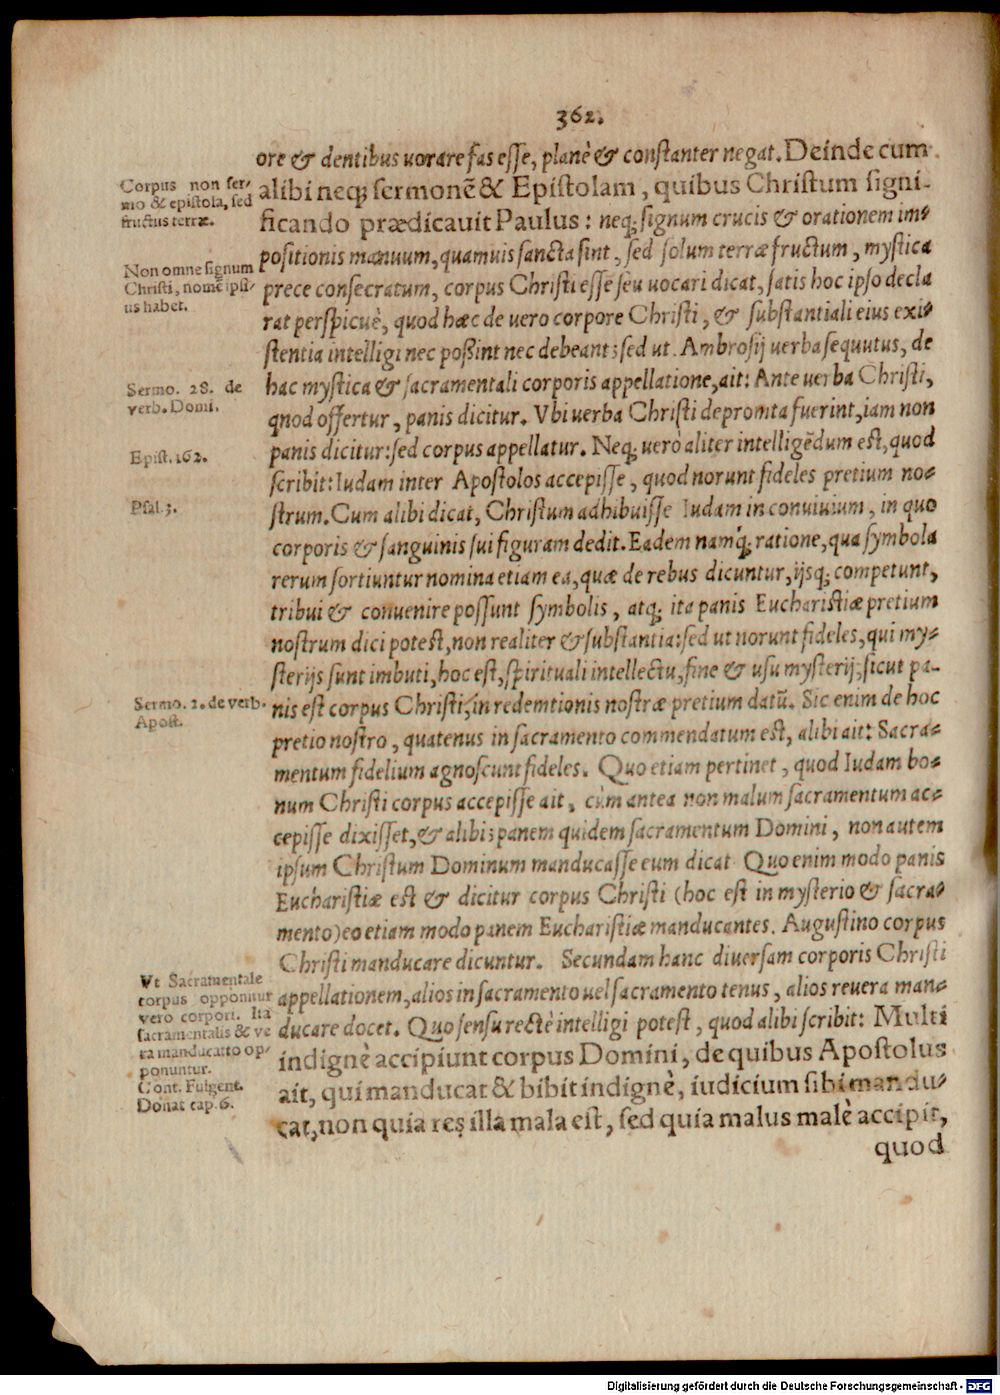 362.
ore & dentibus uorare fas esse, planè & constanter negat. Deinde cum
alibi neq; sermonē & Epistolam, quibus Christum signi-
ficando prædicauit Paulus: neq; signum crucis & orationem im-
positionis manuum, quamuis sancta sint, sed solum terræ fructum, mystica
prece consecratum, corpus Christi esse seu uocari dicat, satis hoc ipso decla
rat perspicuè, quod hæc de uero corpore Christi, & substantiali eius exi-
stentia intelligi nec poßint nec debeant: sed ut. Ambrosij uerba sequutus, de
hac mystica & sacramentali corporis appellatione, ait: Ante uerba Christi,
qnod offertur, panis dicitur. Vbi uerba Christi depromta fuerint, iam non
panis dicitur: sed corpus appellatur. Neq; uerò aliter intelligēdum est, quod
scribit: Iudam inter Apostolos accepisse, quod norunt fideles pretium no-
strum. Cum alibi dicat, Christum adhibuisse Iudam in conuiuium, in quo
corporis & sanguinis sui figuram dedit. Eadem namq; ratione, qua symbola
rerum sortiuntur nomina etiam ea, quæ de rebus dicuntur, ijsq; competunt,
tribui & conuenire possunt symbolis, atq; ita panis Eucharistiæ pretium
nostrum dici potest, non realiter & substantia: sed ut norunt fideles, qui my-
sterijs sunt imbuti, hoc est, spirituali intellectu, fine & usu mysterij, sicut pa-
nis est corpus Christi, in redemtionis nostræ pretium datū. Sic enim de hoc
pretio nostro, quatenus in sacramento commendatum est, alibi ait: Sacra-
mentum fidelium agnoscunt fideles. Quo etiam pertinet, quod Iudam bo-
num Christi corpus accepisse ait, cùm antea non malum sacramentum ac-
cepisse dixisset, & alibi: panem quidem sacramentum Domini, non autem
ipsum Christum Dominum manducasse eum dicat Quo enim modo panis
Eucharistiæ est & dicitur corpus Christi (hoc est in mysterio & sacra-
mento) eo etiam modo panem Eucharistiæ manducantes. Augustino corpus
Christi manducare dicuntur. Secundam hanc diuersam corporis Christi
appellationem, alios in sacramento uel sacramento tenus, alios reuera man-
ducare docet. Quo sensu rectè intelligi potest, quod alibi scribit: Multi
indignè accipiunt corpus Domini, de quibus Apostolus
ait, qui manducat & bibit indignè, iudicium sibi mandu-
cat, non quia res illa mala est, sed quia malus malè accipit,
quod
Corpus non ser-
mo & epistola, sed
fructus terræ.
Non omne signum
Christi, nomē ipsi-
us habet.
Sermo. 28. de
verb. Domi.
Epist. 162.
Psal. 3.
Sermo. 2. de verb.
Apost.
Vt Sacramentale
corpus opponitur
vero corpori. Ita
sacramentalis & ve
ra manducatio op-
ponuntur.
Cont. Fulgent.
Donat cap. 6.
Digitalisierung gefördert durch die Deutsche Forschungsgemeinschaft - DFG